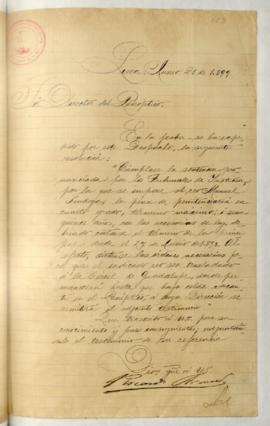 Lima, Junio 21 de 1899
Sr. Director del Panóptico.
En la fecha se ha expe-
dido por este Despacho, la siguiente
resolución:
"Cúmplase la sentencia pro-
nunciada por los Tribunales de Justicia,
por la que se impone al reo Manuel
la pena de penitenciaría en
cuarto grado, término máximo, ó sean
años, con las accesorias de ley, de-
biendo contarse el término de la prin-
cipal desde el 29 de Junio de 1892. Al
efecto, díctense las órdenes necesarias pa-
ra que el indicado reo sea trasladado
á la Cárcel de Guadalupe, donde per-
manecerá hasta que haya celda vacan-
te en el Panóptico, á cuya Dirección se
remitirá el adjunto testimonio".
Que trascribo á US. para su
conocimiento y fines consiguientes,
el testimonio de su referencia.
Dios gue á US.